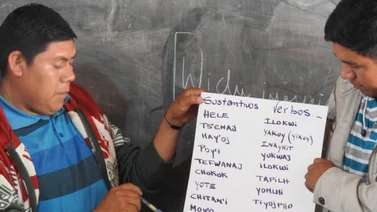 Sustantivos Verbos -
HELE ILOKWI
TSEMAJ YAKOY (YIKOY)
HAY'OJ INAYKIT
POYI YUKWAJ
TEFWANAJ ILOKWI
CHOKOK TAPILH
YOTE YOMHI
CHITAN'I TIYOJPHO
MOYO